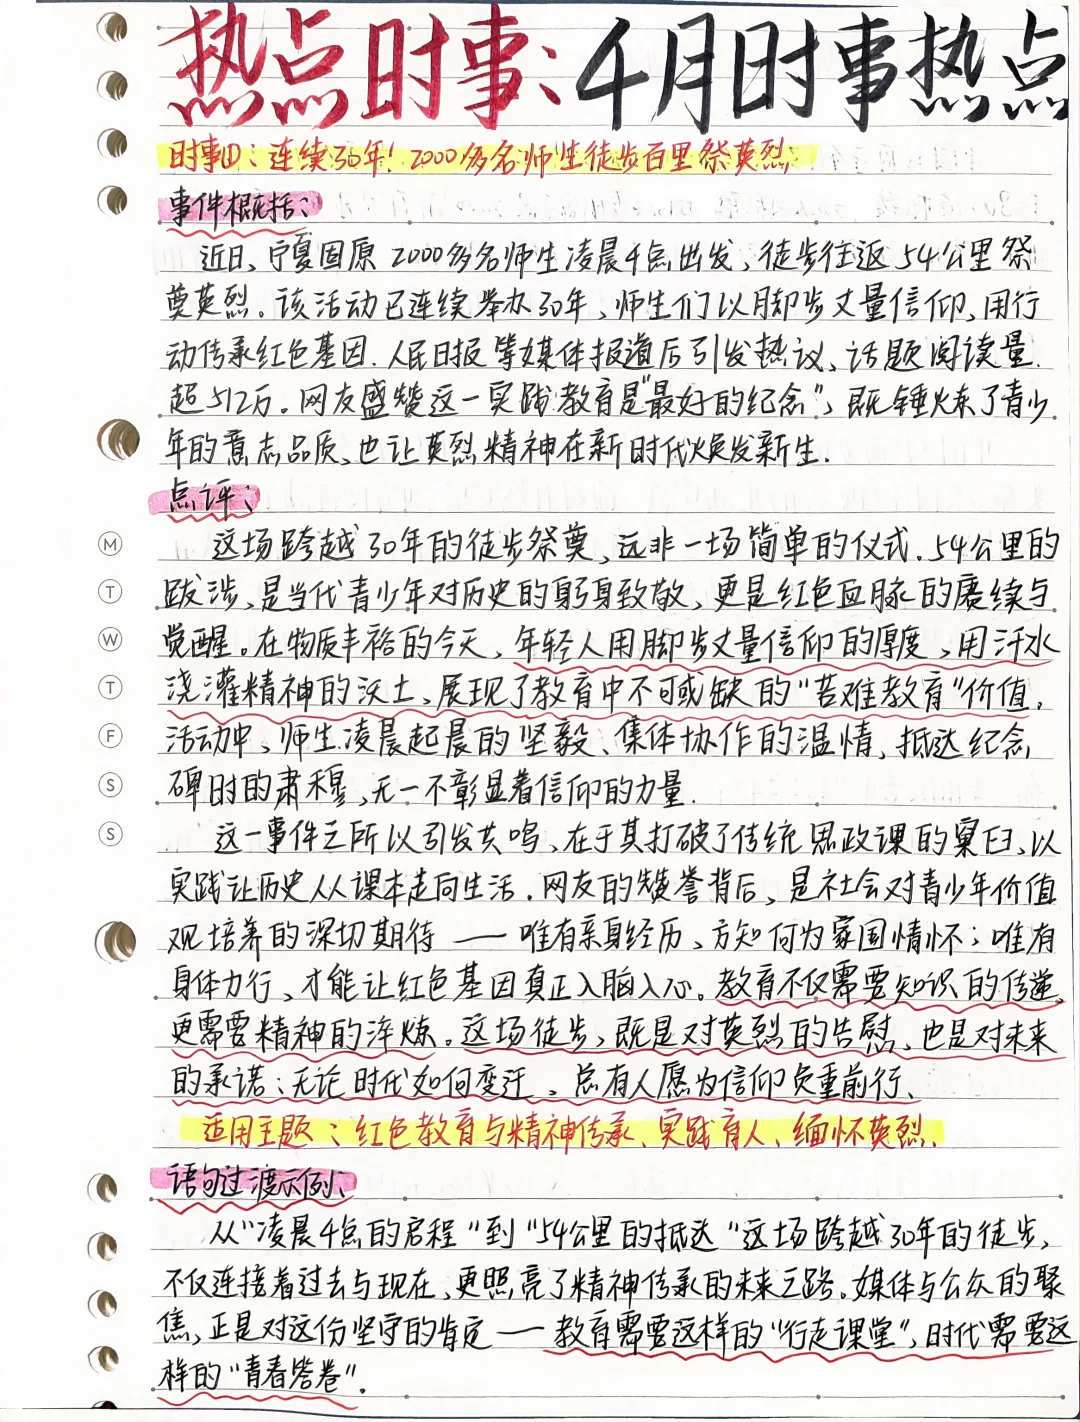 热点时事：4月时事热点
时事①：连续30年！2000多名师生徒步百里祭英烈
事件概括：
近日、宁夏固原2000多名师生凌晨4点出发，徒步往返54公里祭
奠英烈。该活动已连续举办30年，师生们以脚步丈量信仰，用行
动传承红色基因.人民日报等媒体报道后引发热议、话题阅读量
超512万。网友盛赞这一实践教育是"最好的纪念"，既锤炼了青少
年的意志品质、也让英烈精神在新时代焕发新生.
点评：
这场跨越30年的徒步祭奠，远非一场简单的仪式.54公里的
跋涉，是当代青少年对历史的躬身致敬，更是红色血脉的赓续与
觉醒。在物质丰裕的今天，年轻人用脚步丈量信仰的厚度，用汗水
浇灌精神的沃土、展现了教育中不可或缺的"苦难教育"价值，
活动中，师生凌晨起晨的坚毅、集体协作的温情，抵达纪念
碑时的肃穆，无一不彰显着信仰的力量.
这一事件之所以引发共鸣、在于其打破了传统思政课的窠臼、以
实践让历史从课本走向生活.网友的赞誉背后，是社会对青少年价值
观培养的深切期待——唯有亲身经历，方知何为家国情怀；唯有
身体力行、才能让红色基因真正入脑入心。教育不仅需要知识的传递，
更需要精神的淬炼。这场徒步，既是对英烈的告慰，也是对未来
的承诺：无论时代如何变迁、总有人愿为信仰负重前行、
适用主题：红色教育与精神传承、实践育人、缅怀英烈、
语句过渡示例：
从"凌晨4点的启程"到"54公里的抵达"这场跨越30年的徒步，
不仅连接着过去与现在，更照亮了精神传承的未来之路。媒体与公众的聚
焦，正是对这份坚守的肯定——教育需要这样的"行走课堂"，时代需要这
样的"青春答卷".
M
T
W
T
F
S
S